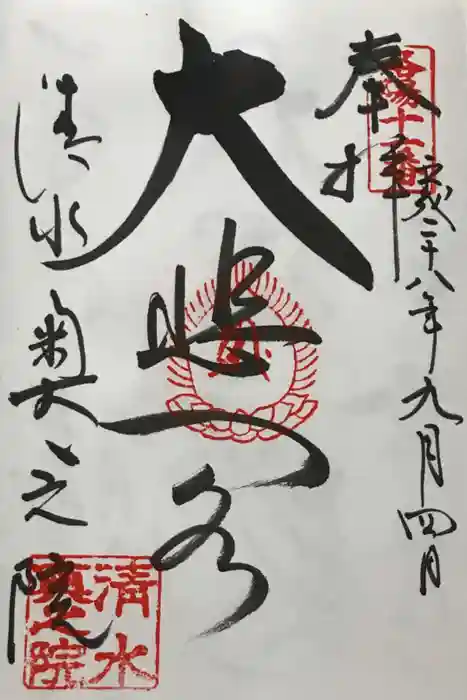 洛陽十一番
奉拝
平成二十八年九月四日
大悲閣
清水奥之院
清水
奥之院